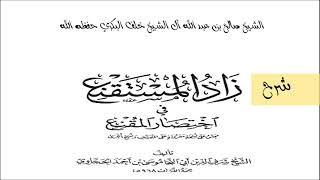 الشيخ صالح بن عبد الله آل الشيخ خلف البكري حفظه الله
شرح
زاد المستقنع
في
اختصار المقنع
تأليف
الشيخ شرف الدين أبي النجا موسى بن أحمد الحجاوي
رحمه الله (ت ٩٦٨هـ)